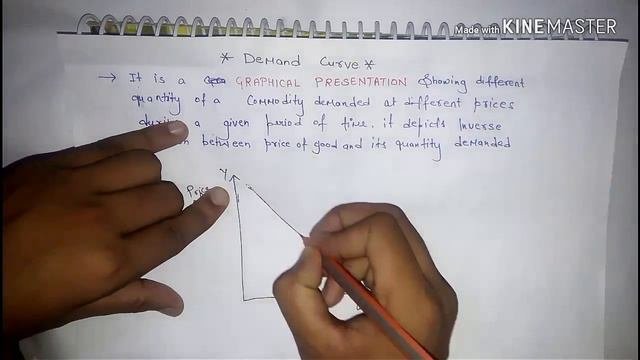 Made with KINEMASTER
* Demand Curve *
→ It is a GRAPHICAL PRESENTATION Showing different
quantity of a Commodity demanded at different prices
a given period of time. it depicts Inverse
between price of good and its quantity demanded
Y
Price